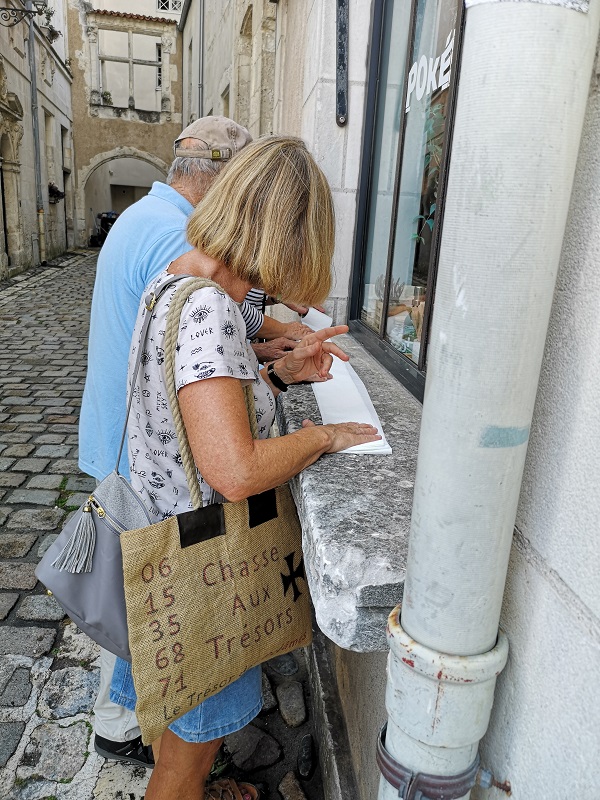 POKÉ
LOVER
06
15
35
68
71
Chasse
Aux
Trésors
Le Trésor